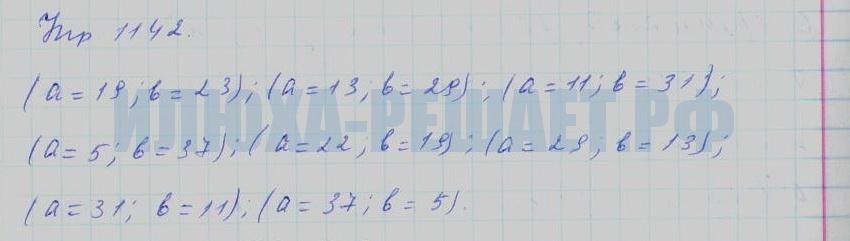 Упр 1142.
(a = 19; в = 23); (a = 13; в = 29); (a = 11; в = 31);
ИЛЮХА-РЕШАЕТ.РФ
(a = 5; в = 37); (a = 22; в = 19); (a = 29; в = 13);
(a = 31; в = 11); (a = 37; в = 5).